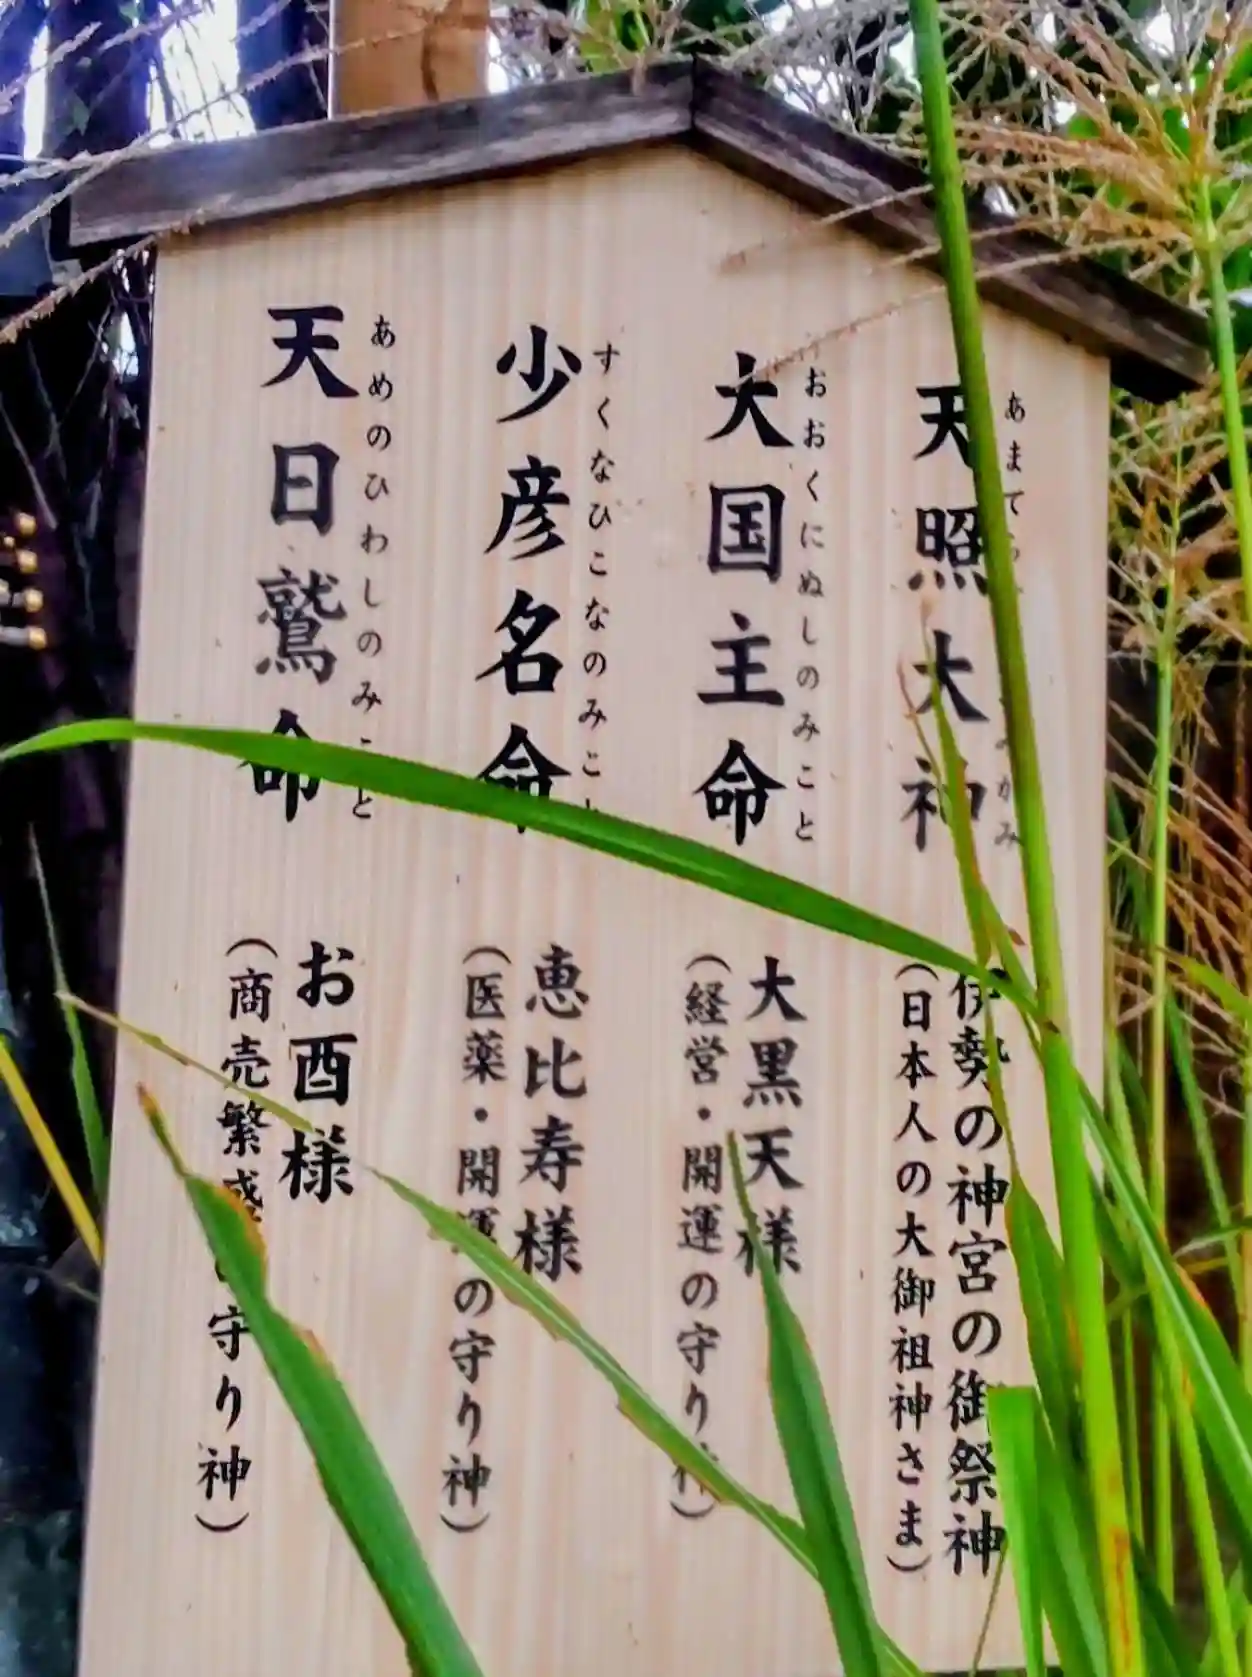 天照大神
大国主命
おおくにぬしのみこと
少彦名命
すくなひこなのみこと
天日鷲命
あめのひわしのみこと
伊勢の神宮の御祭神
(日本人の大御祖神さま)
大黒天様
(経営・開運の守り神)
恵比寿様
(医薬・開運の守り神)
お酉様
(商売繁盛の守り神)